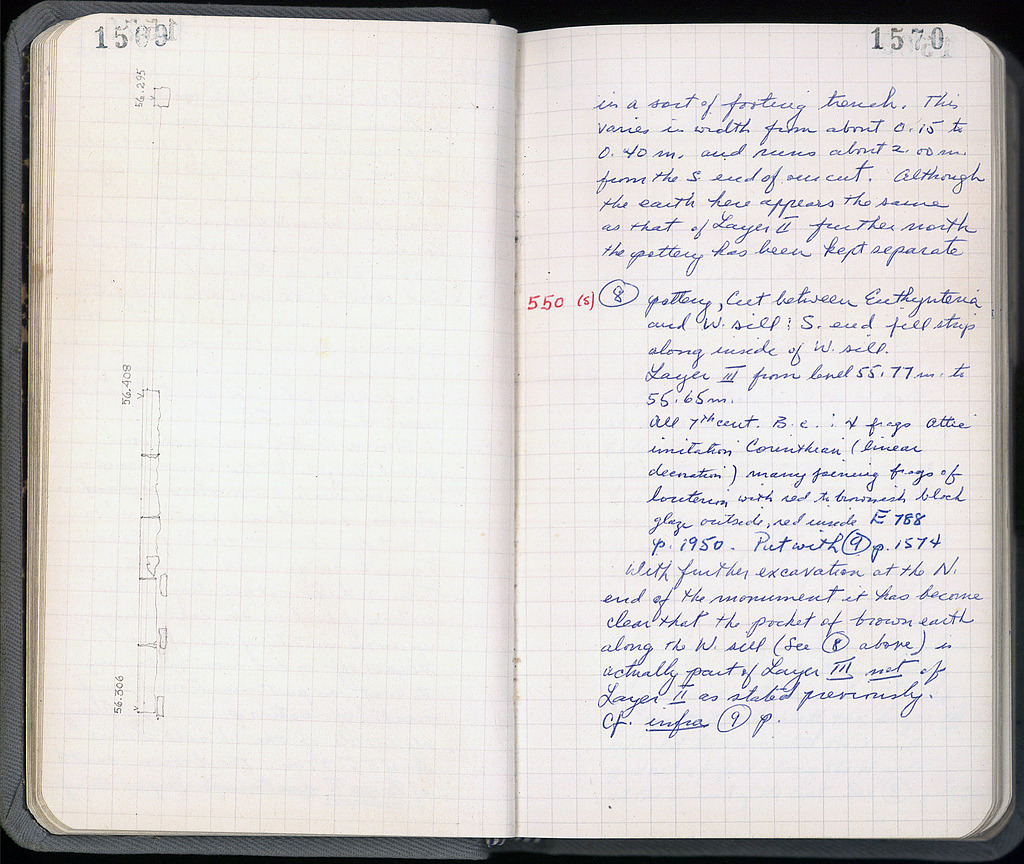 1569
56.295
56.408
56.306
1570
in a sort of footing trench. This
varies in width from about 0.15 to
0.40 m. and runs about 2.00 m.
from the S. end of our cut. Although
the earth here appears the same
as that of Layer II further north
the pottery has been kept separate
550 (s) 8 pottery, Cut between Euthynteria
and W. sill : S. end fill strip
along inside of W. sill.
Layer III from level 55.77 m. to
55.65 m.
All 7th cent. B.C. : 4 frags Attic
imitation Corinthian (linear
decoration) many joining frags of
louterion with red to brownish black
glaze outside, red inside E 788
p. 1950. Put with 9 p. 1574
With further excavation at the N.
end of the monument it has become
clear that the pocket of brown earth
along the W. sill (See 8 above) is
actually part of Layer III not of
Layer II as stated previously.
Cf. infra 9 p.